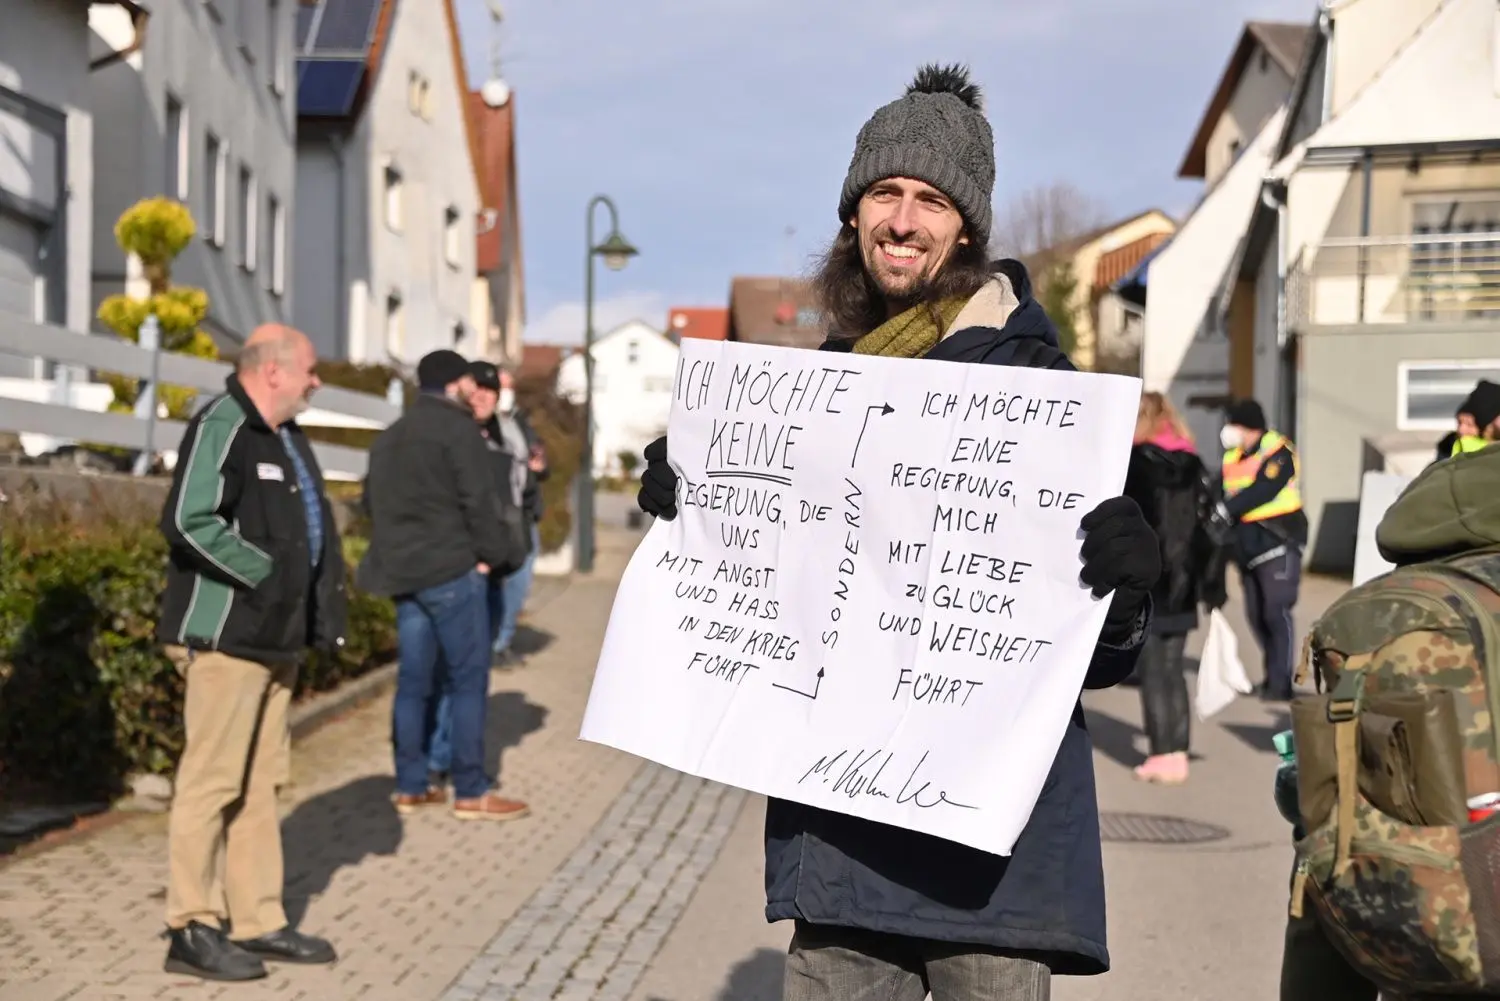 ICH MÖCHTE
KEINE
REGIERUNG, DIE
UNS
MIT ANGST
UND HASS
IN DEN KRIEG
FÜHRT
SONDERN
ICH MÖCHTE
EINE
REGIERUNG, DIE
MICH
MIT LIEBE
ZU GLÜCK
UND WEISHEIT
FÜHRT